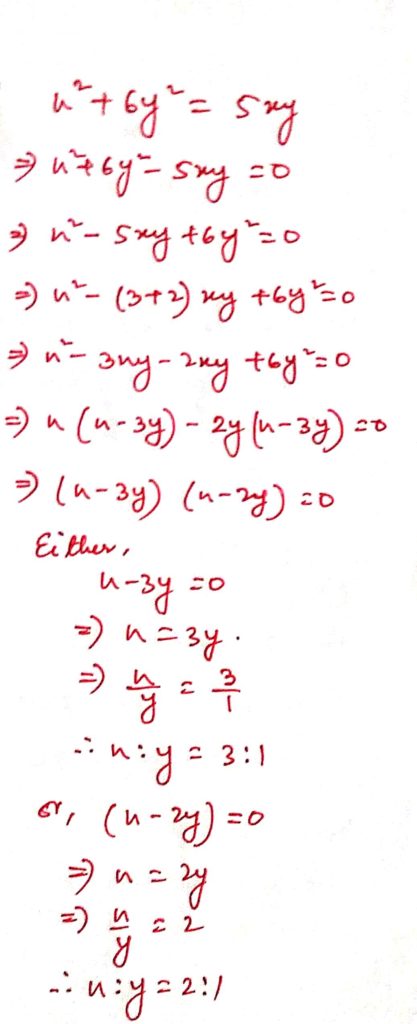 x² + 6y² = 5xy
⇒ x² + 6y² - 5xy = 0
⇒ x² - 5xy + 6y² = 0
⇒ x² - (3+2) xy + 6y² = 0
⇒ x² - 3xy - 2xy + 6y² = 0
⇒ x (x - 3y) - 2y (x - 3y) = 0
⇒ (x - 3y) (x - 2y) = 0
Either,
x - 3y = 0
⇒ x = 3y.
⇒ x/y = 3/1
∴ x : y = 3 : 1
or, (x - 2y) = 0
⇒ x = 2y
⇒ x/y = 2
∴ x : y = 2 : 1